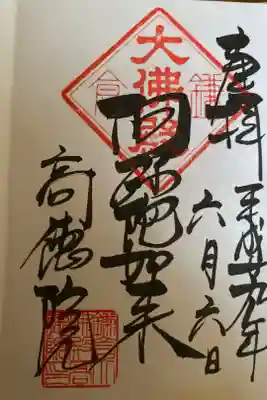 奉拝 平成廿九年
六月六日
大佛殿
鎌倉
阿弥陀如来
高徳院